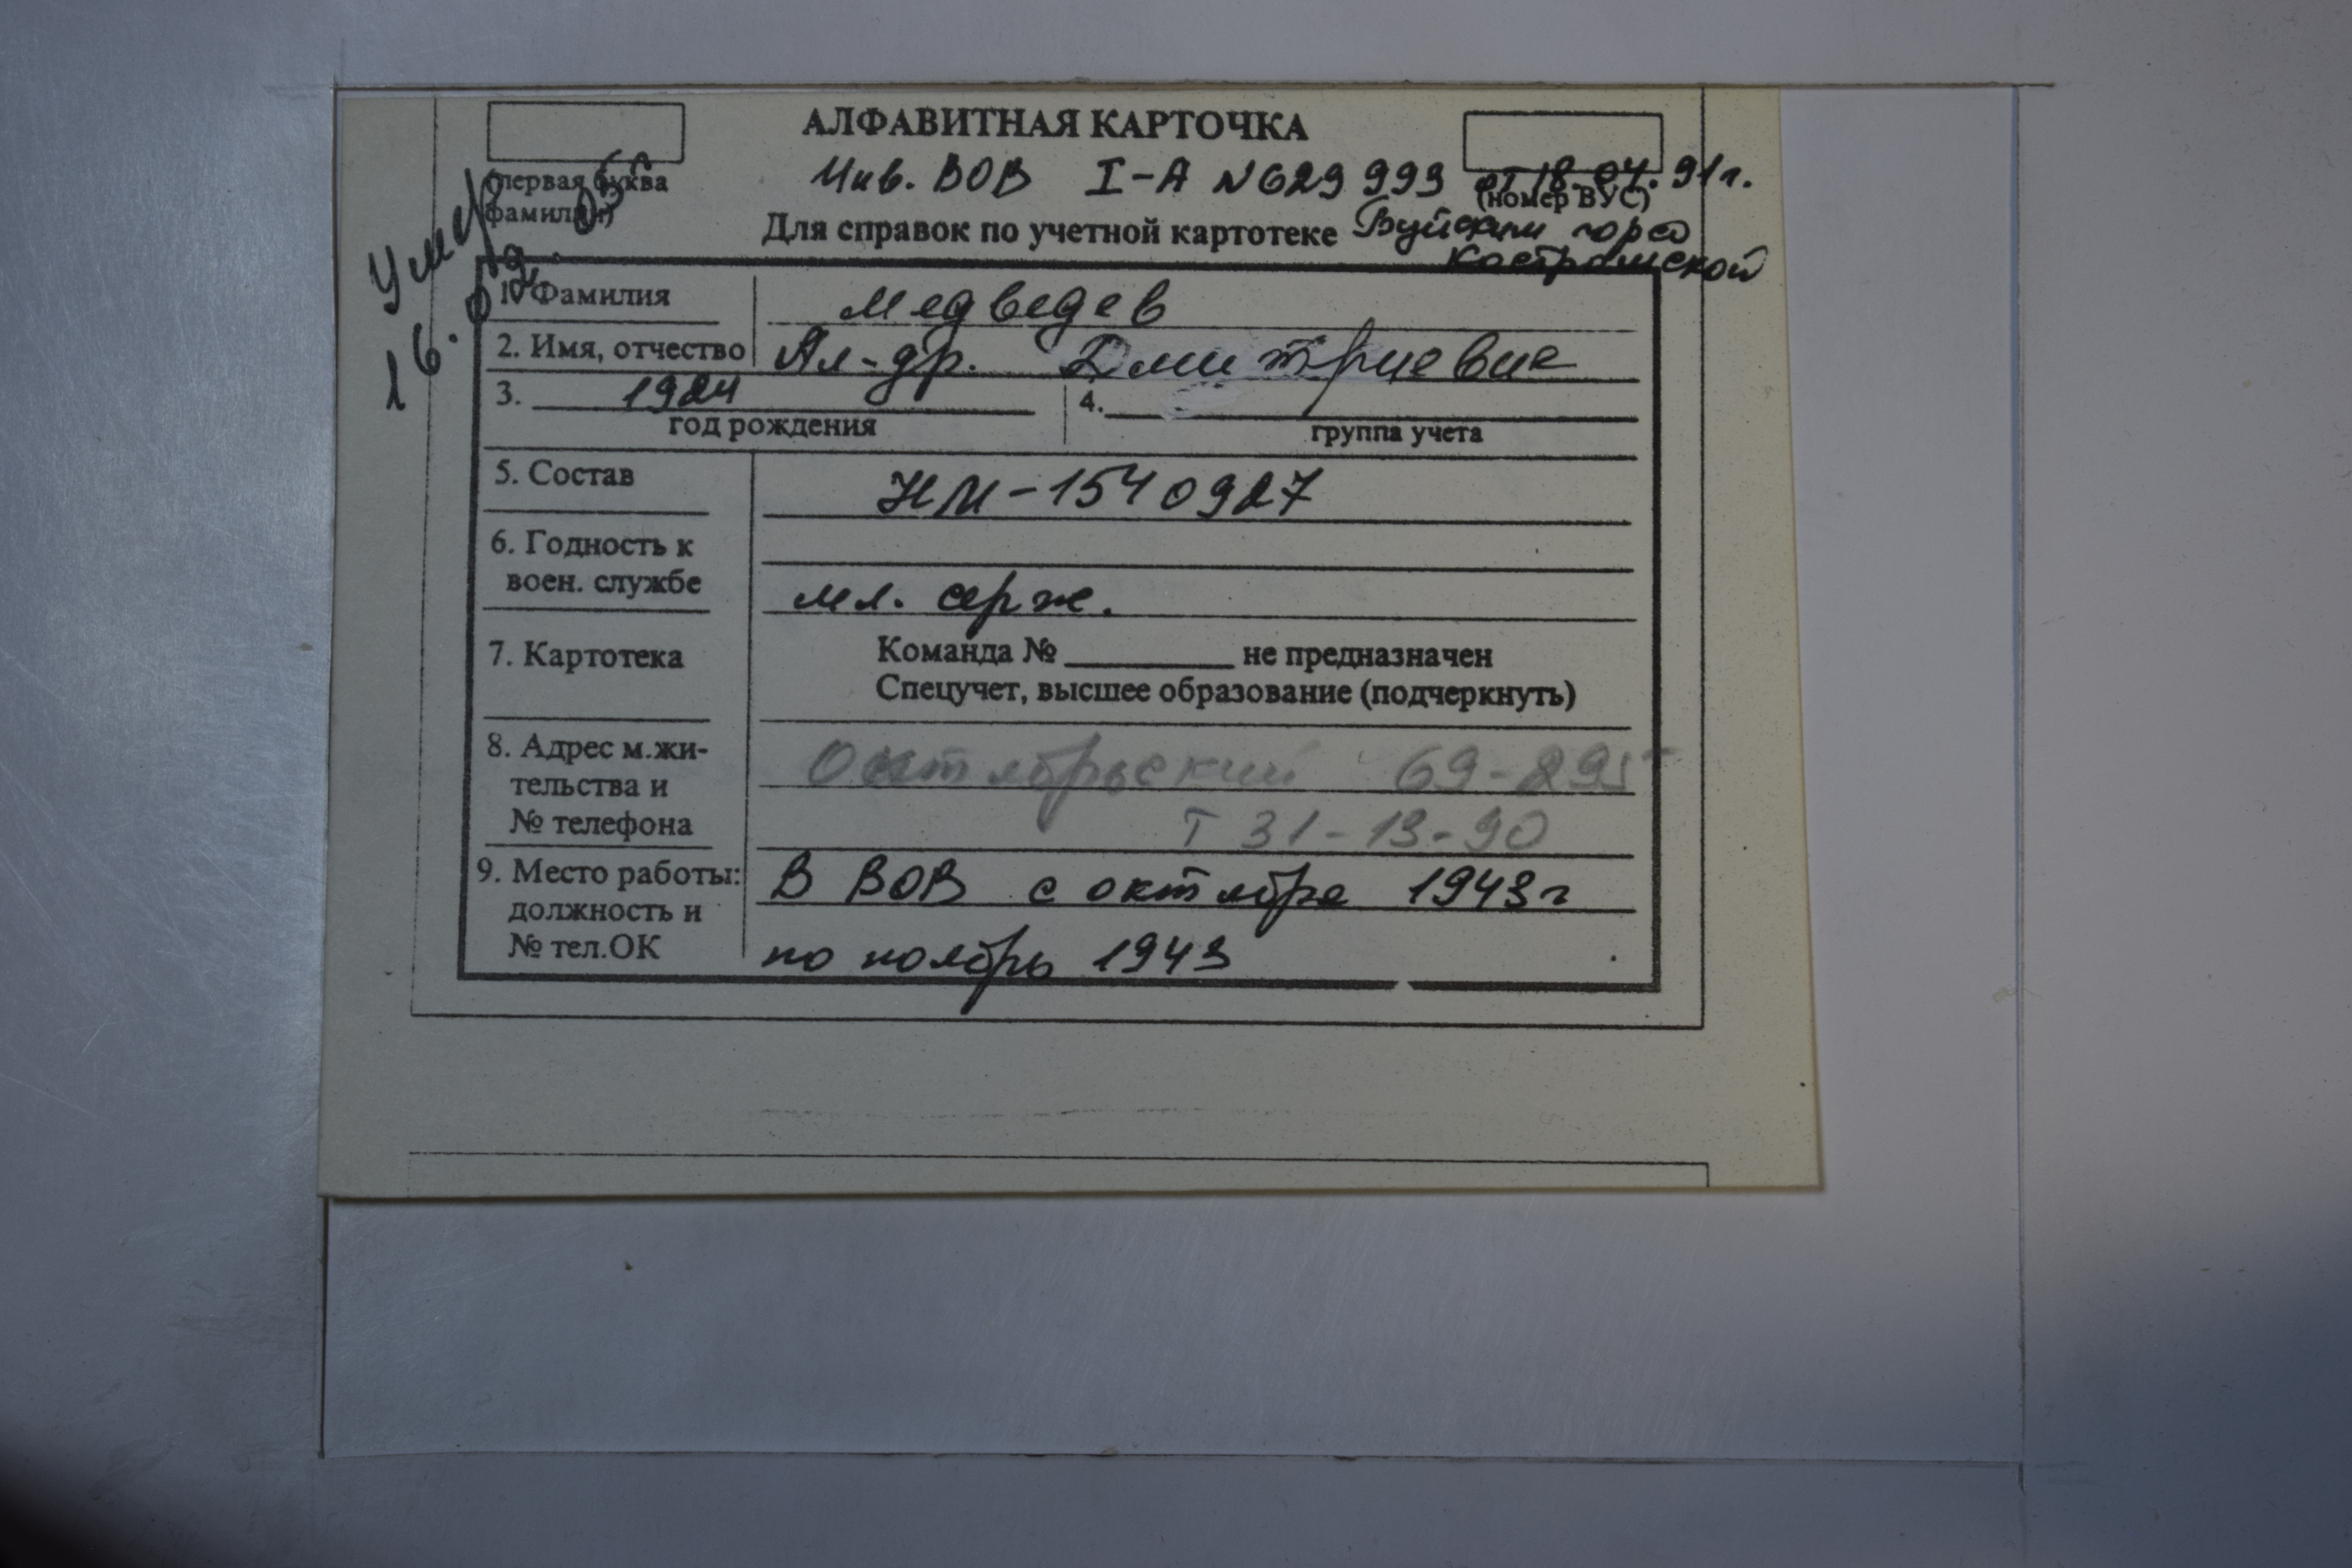 АЛФАВИТНАЯ КАРТОЧКА
Инв. ВОВ I-А №629 999 от 18.04.91г.
(первая буква фамилии)
(номер ВУС)
Для справок по учетной картотеке
Буйским горсо
Костромской
Умер
16.02.05г
1. Фамилия Медведев
2. Имя, отчество Ал-др. Дмитриевич
3. 1924 4.
год рождения группа учета
5. Состав НМ-1540927
6. Годность к
воен. службе мл. серж.
7. Картотека Команда № ________ не предназначен
Спецучет, высшее образование (подчеркнуть)
8. Адрес м.жи- Октябрьский 69-295
тельства и
№ телефона Т 31-13-90
9. Место работы: В ВОВ с октября 1943г
должность и
№ тел.ОК по ноябрь 1943